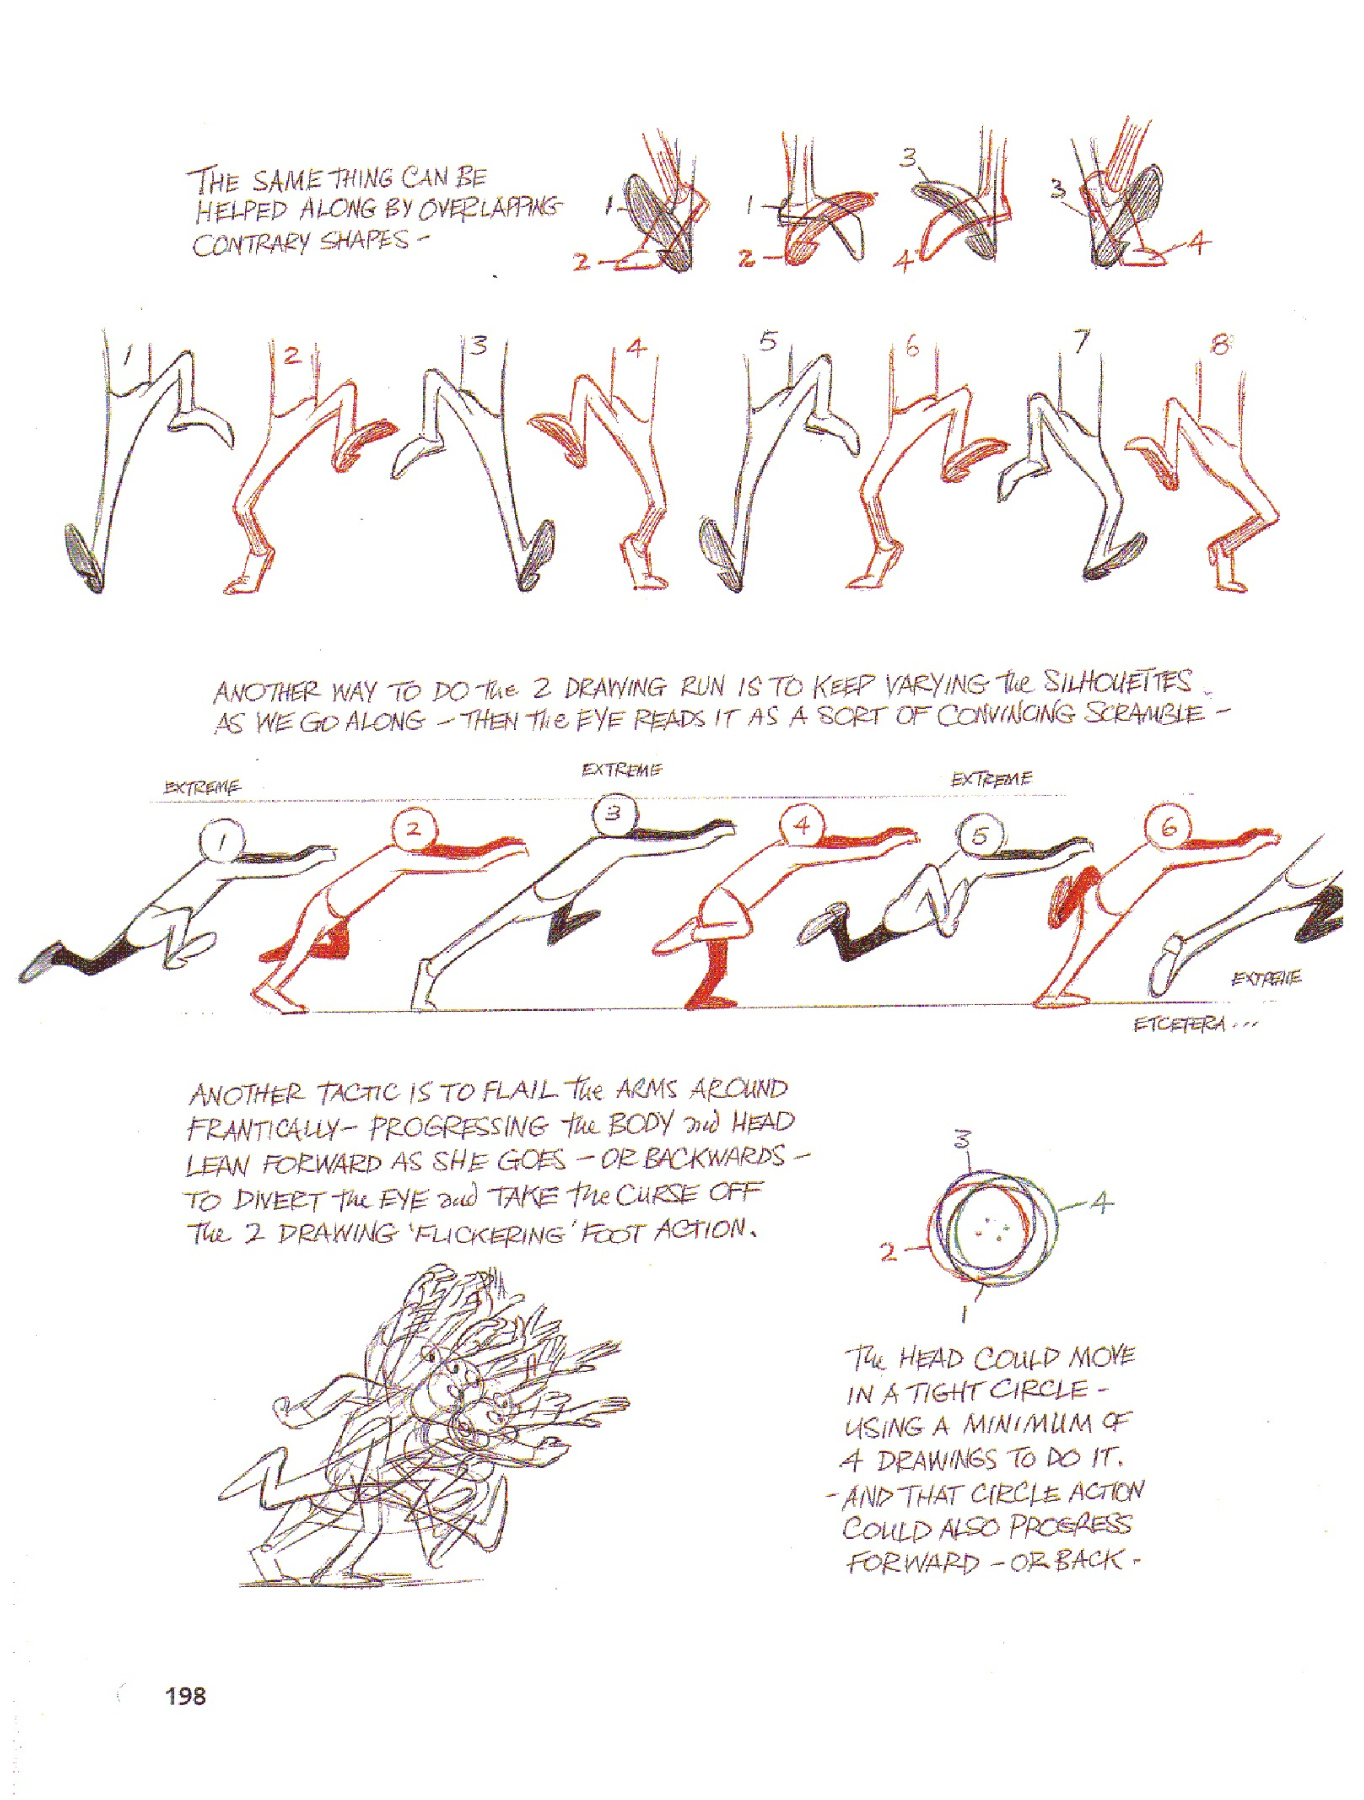 THE SAME THING CAN BE
HELPED ALONG BY OVERLAPPING
CONTRARY SHAPES -
1
2
1
2
3
4
3
4
1
2
3
4
5
6
7
8
ANOTHER WAY TO DO The 2 DRAWING RUN IS TO KEEP VARYING the SILHOUETTES
AS WE GO ALONG - THEN The EYE READS IT AS A SORT OF CONVINCING SCRAMBLE -
EXTREME
EXTREME
EXTREME
1
2
3
4
5
6
EXTREME
ETCETERA ...
ANOTHER TACTIC IS TO FLAIL the ARMS AROUND
FRANTICALLY - PROGRESSING the BODY and HEAD
LEAN FORWARD AS SHE GOES - OR BACKWARDS -
TO DIVERT the EYE and TAKE the CURSE OFF
The 2 DRAWING 'FLICKERING' FOOT ACTION.
3
4
2
1
The HEAD COULD MOVE
IN A TIGHT CIRCLE -
USING A MINIMUM OF
4 DRAWINGS TO DO IT.
- AND THAT CIRCLE ACTION
COULD ALSO PROGRESS
FORWARD - OR BACK -
198